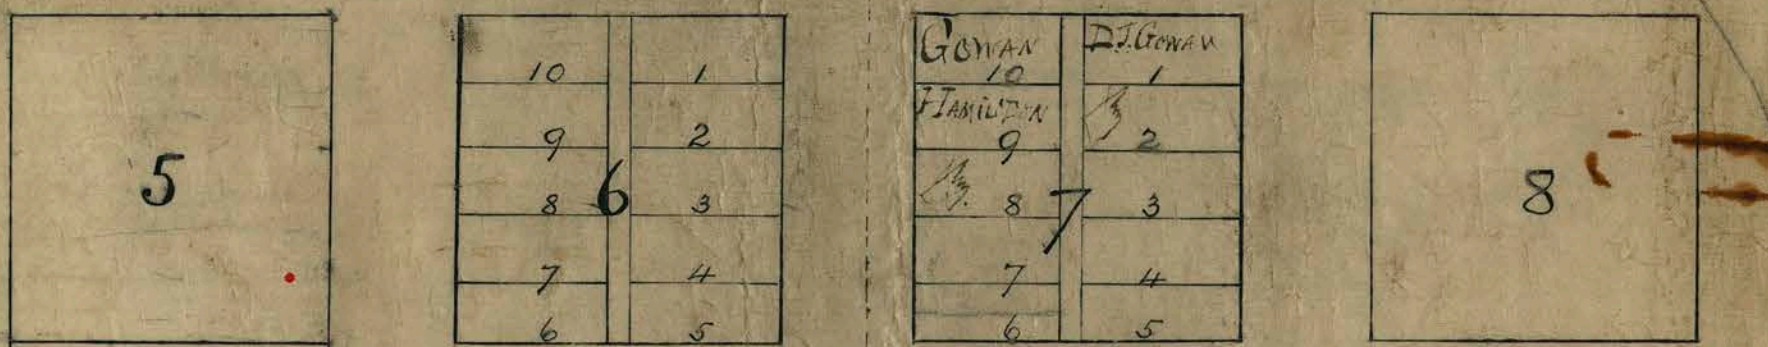 5
10 1
9 2
8 3
7 4
6 5
6
GOWAN D.J. GOWAN
10 1
HAMILTON
9 2
8 3
7 4
6 5
7
8